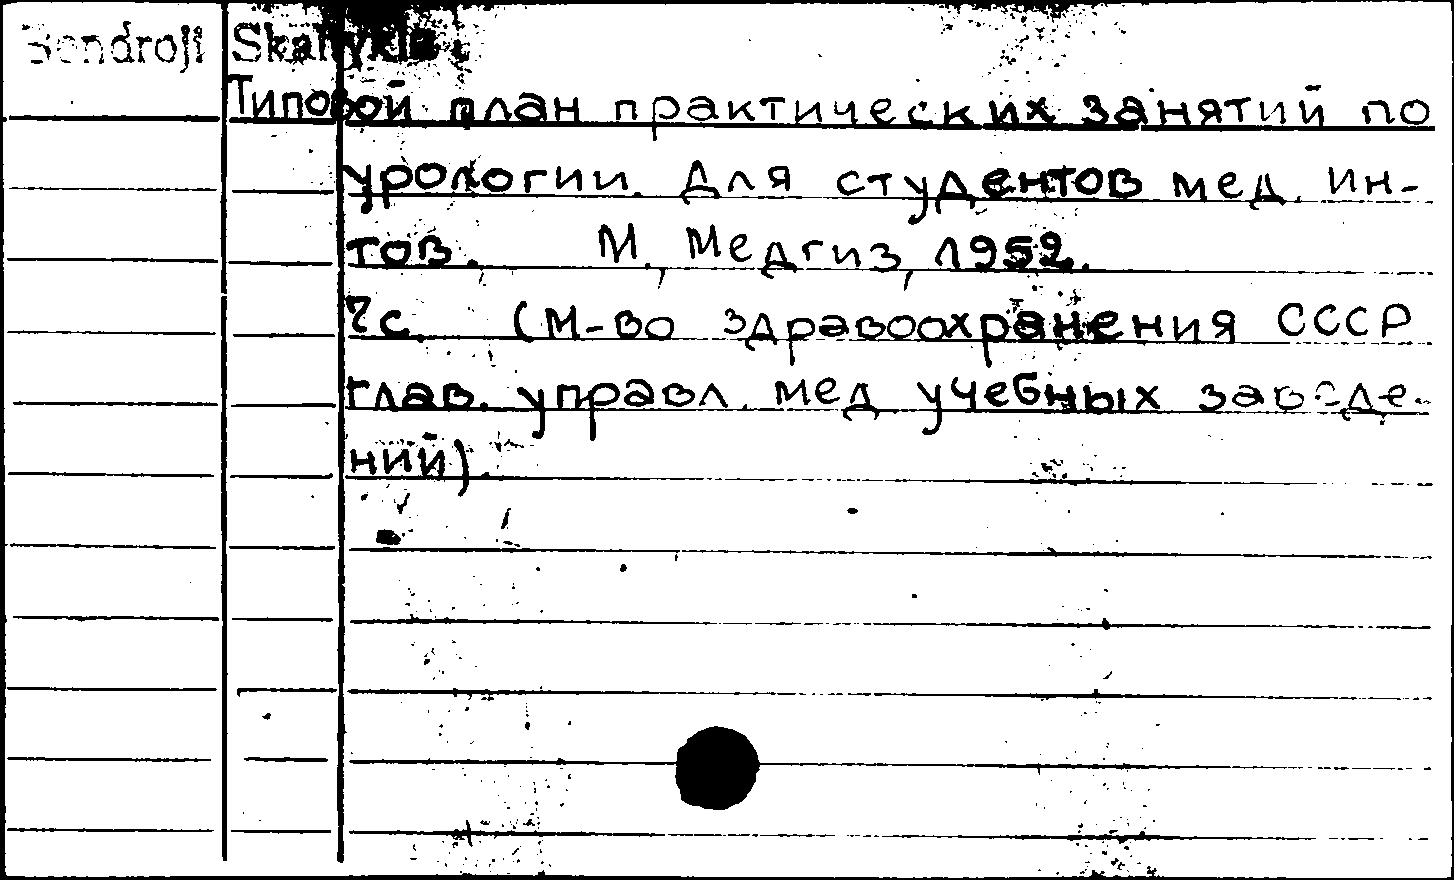 Bendroji Skaitykla
Типовой план практических занятий по
урологии. Для студентов мед. ин-
тов. М., Медгиз, 1952.
7с. (М-во здравоохранения СССР
глав. управл. мед учебных заведе-
ний).